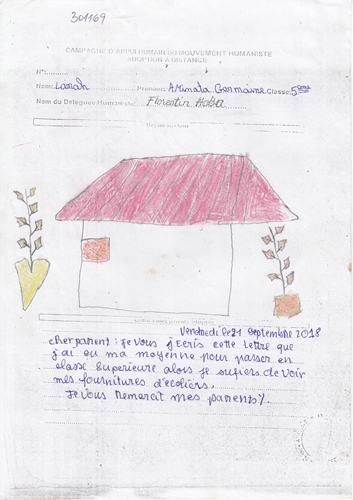 301169
CAMPAGNE D'APPUI HUMAIN DU MOUVEMENT HUMANISTE
ADOPTION A DISTANCE
N°:
Nom: Lanah Prenoms: AMinata Germaine Classe: 5ème
Nom du Delegues Humaniste: Florentin
Vendredi le 21 septembre 2018
cher parent: Je vous j'Ecris cette lettre que
j'ai eu ma moyenne pour passer en
classe superieure alors je sufiers de voir
mes fournitures d'ecoliers.
Je vous Remercit mes parents/.